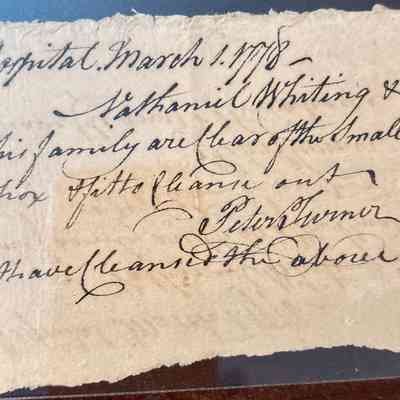 ospital. March 1. 1778 –
Nathaniel Whiting &
his family are Clear of the Small
pox & fit to Cleanse out
Peter Turner
I have Cleansed the above